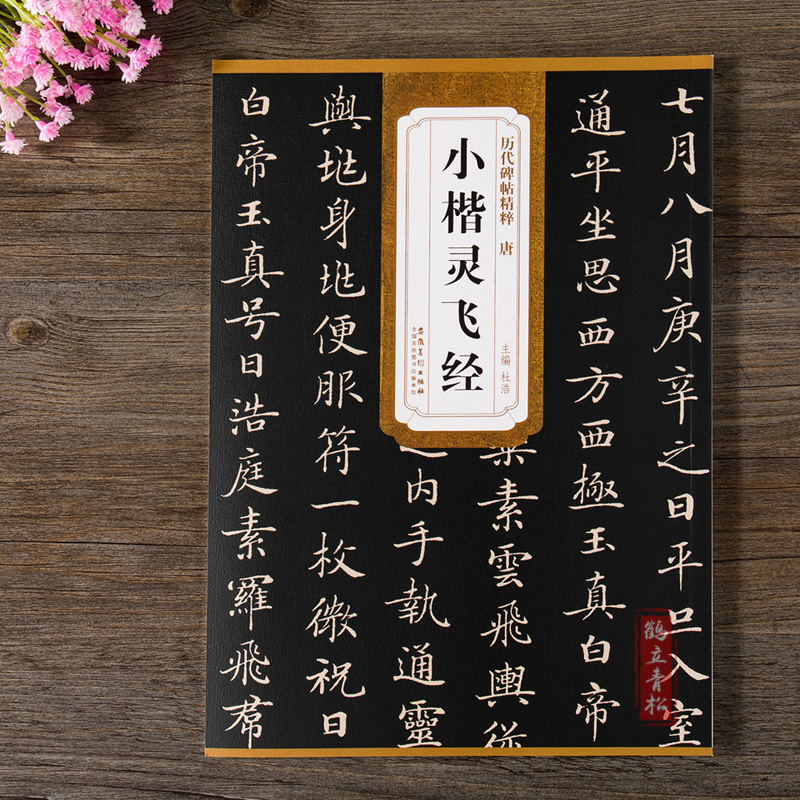 七月八月庚辛之日平旦入室
通平坐思西方西極玉真白帝
历代碑帖精粹 唐
小楷灵飞经
主编 杜浩
安徽美术出版社
全国百佳图书出版单位
素雲飛輿從
之内手執通靈
輿垗身垗便服符一枚微祝曰
白帝玉真号曰浩庭素羅飛帬
鹤立青松